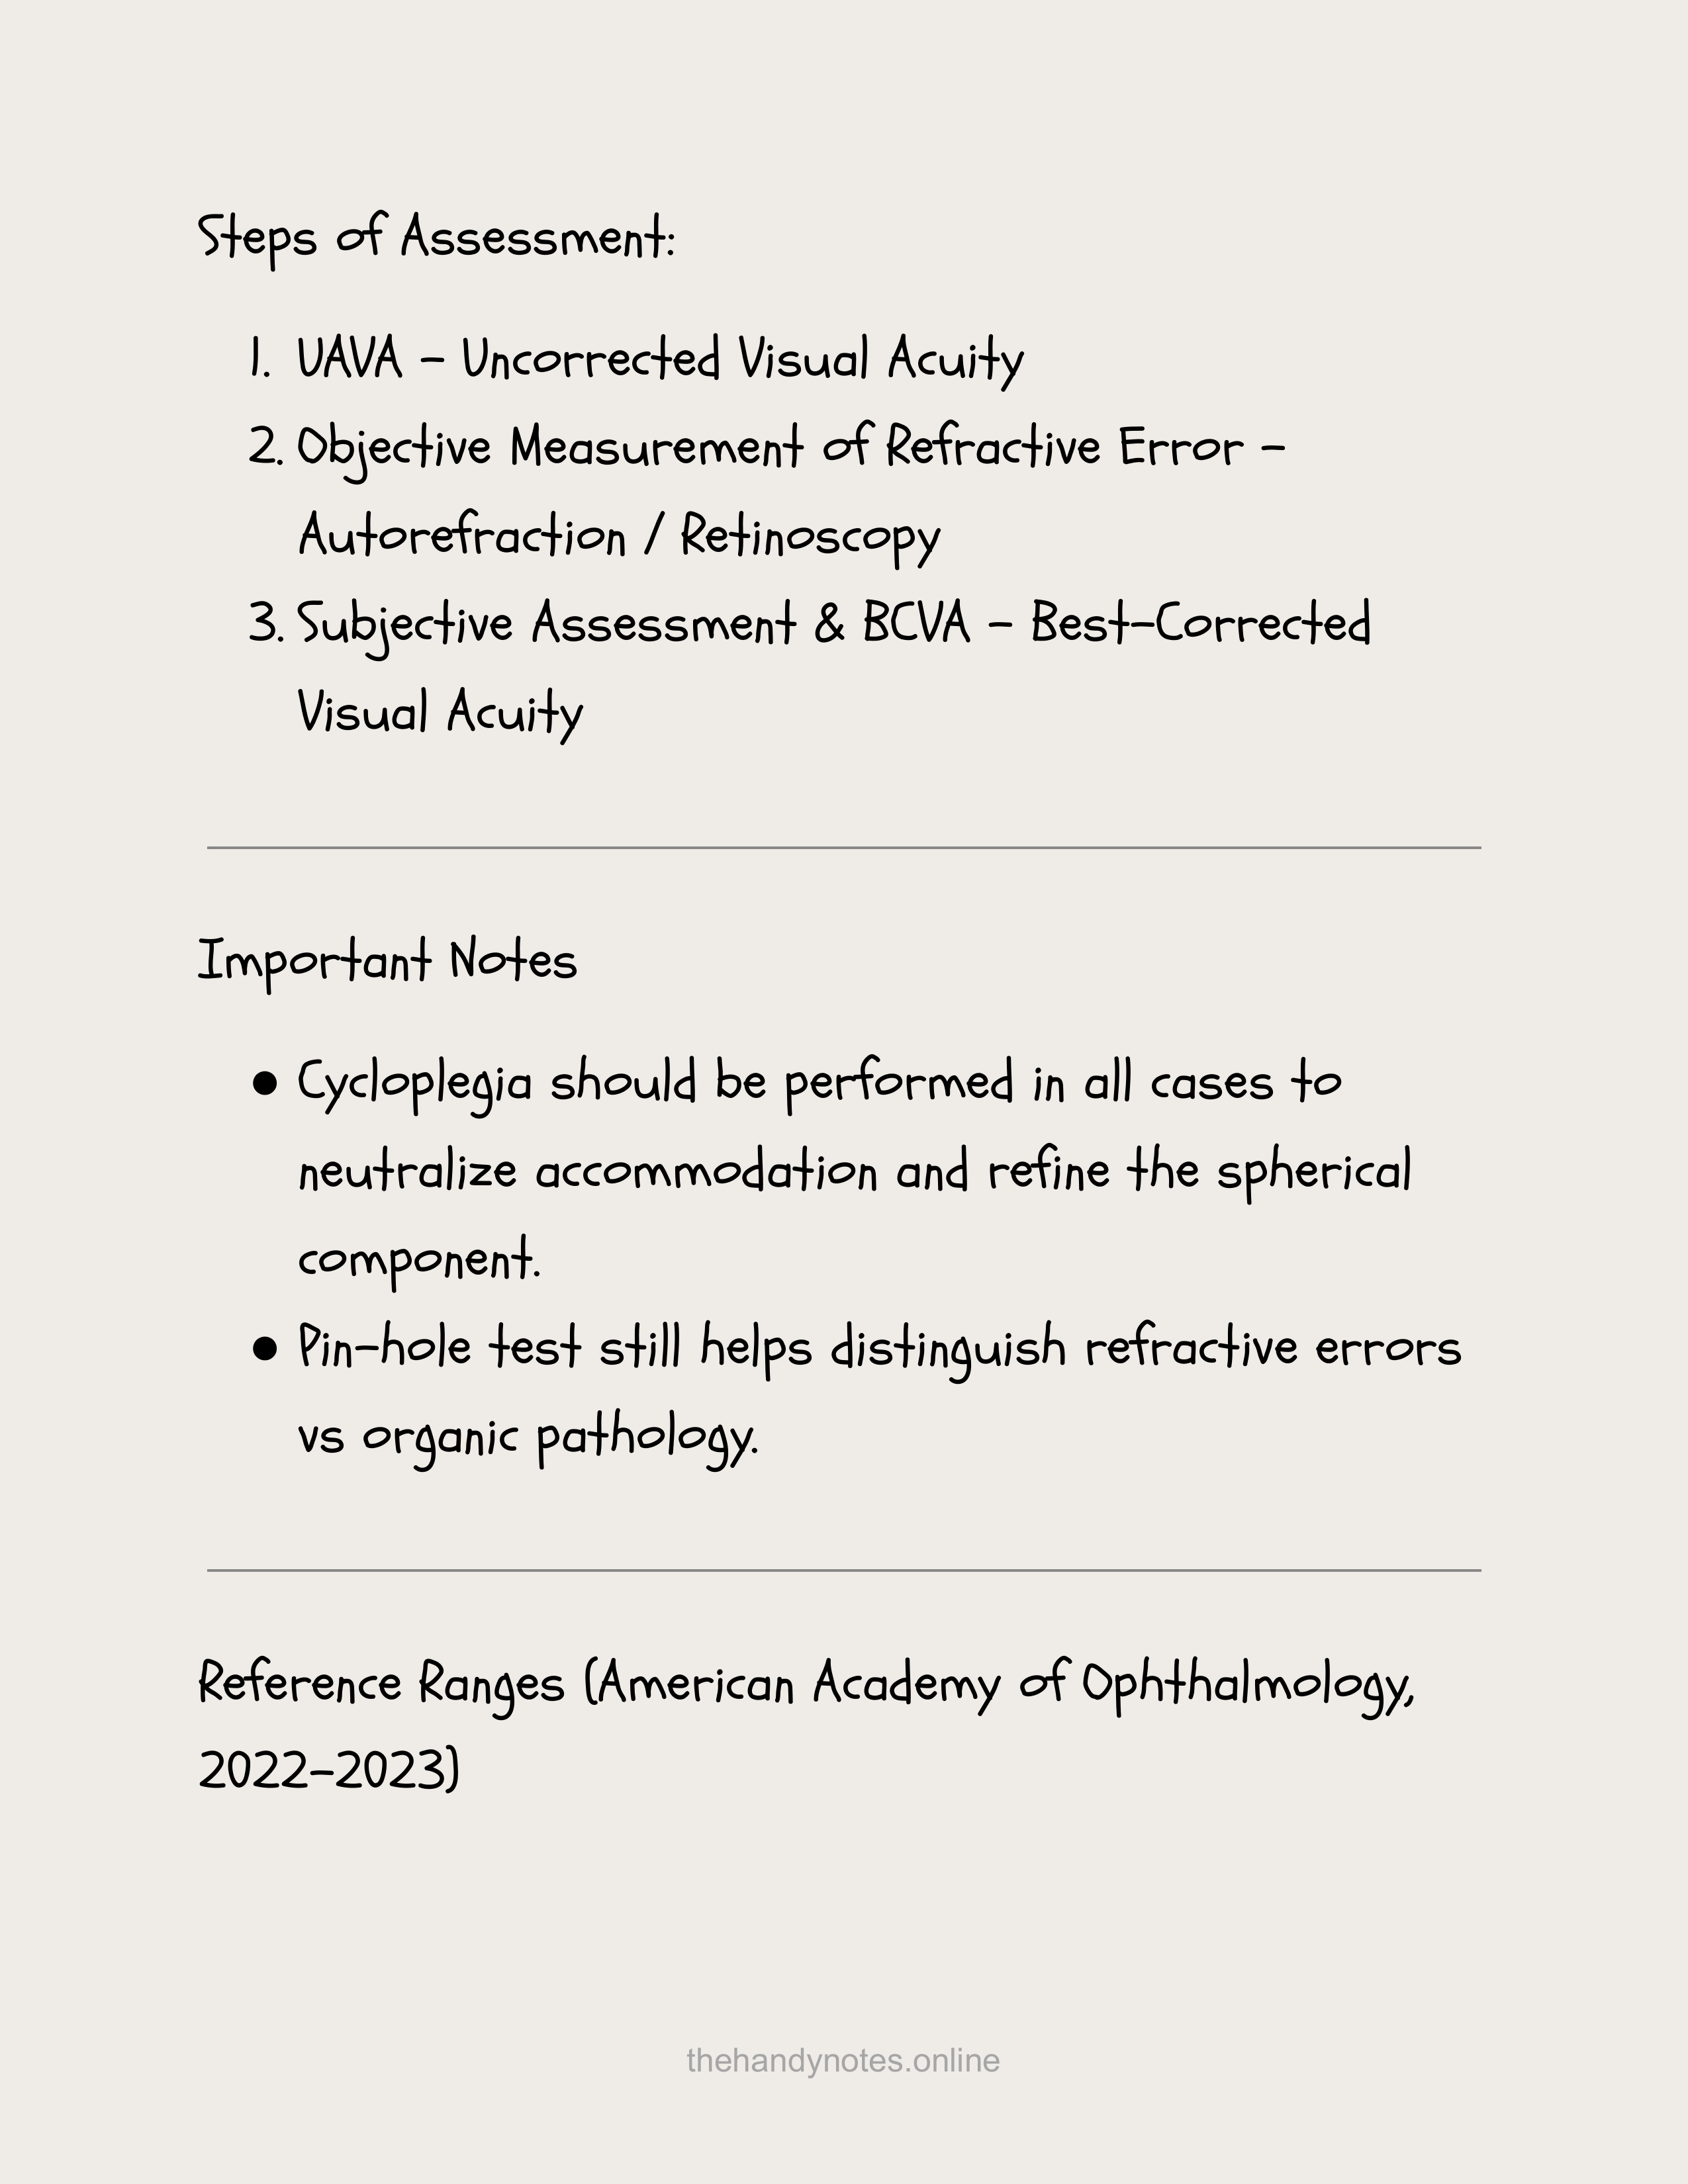 Steps of Assessment:
1. UAVA - Uncorrected Visual Acuity
2. Objective Measurement of Refractive Error -
Autorefraction / Retinoscopy
3. Subjective Assessment & BCVA - Best-Corrected
Visual Acuity
Important Notes
● Cycloplegia should be performed in all cases to
neutralize accommodation and refine the spherical
component.
● Pin-hole test still helps distinguish refractive errors
vs organic pathology.
Reference Ranges (American Academy of Ophthalmology,
2022-2023)
thehandynotes.online